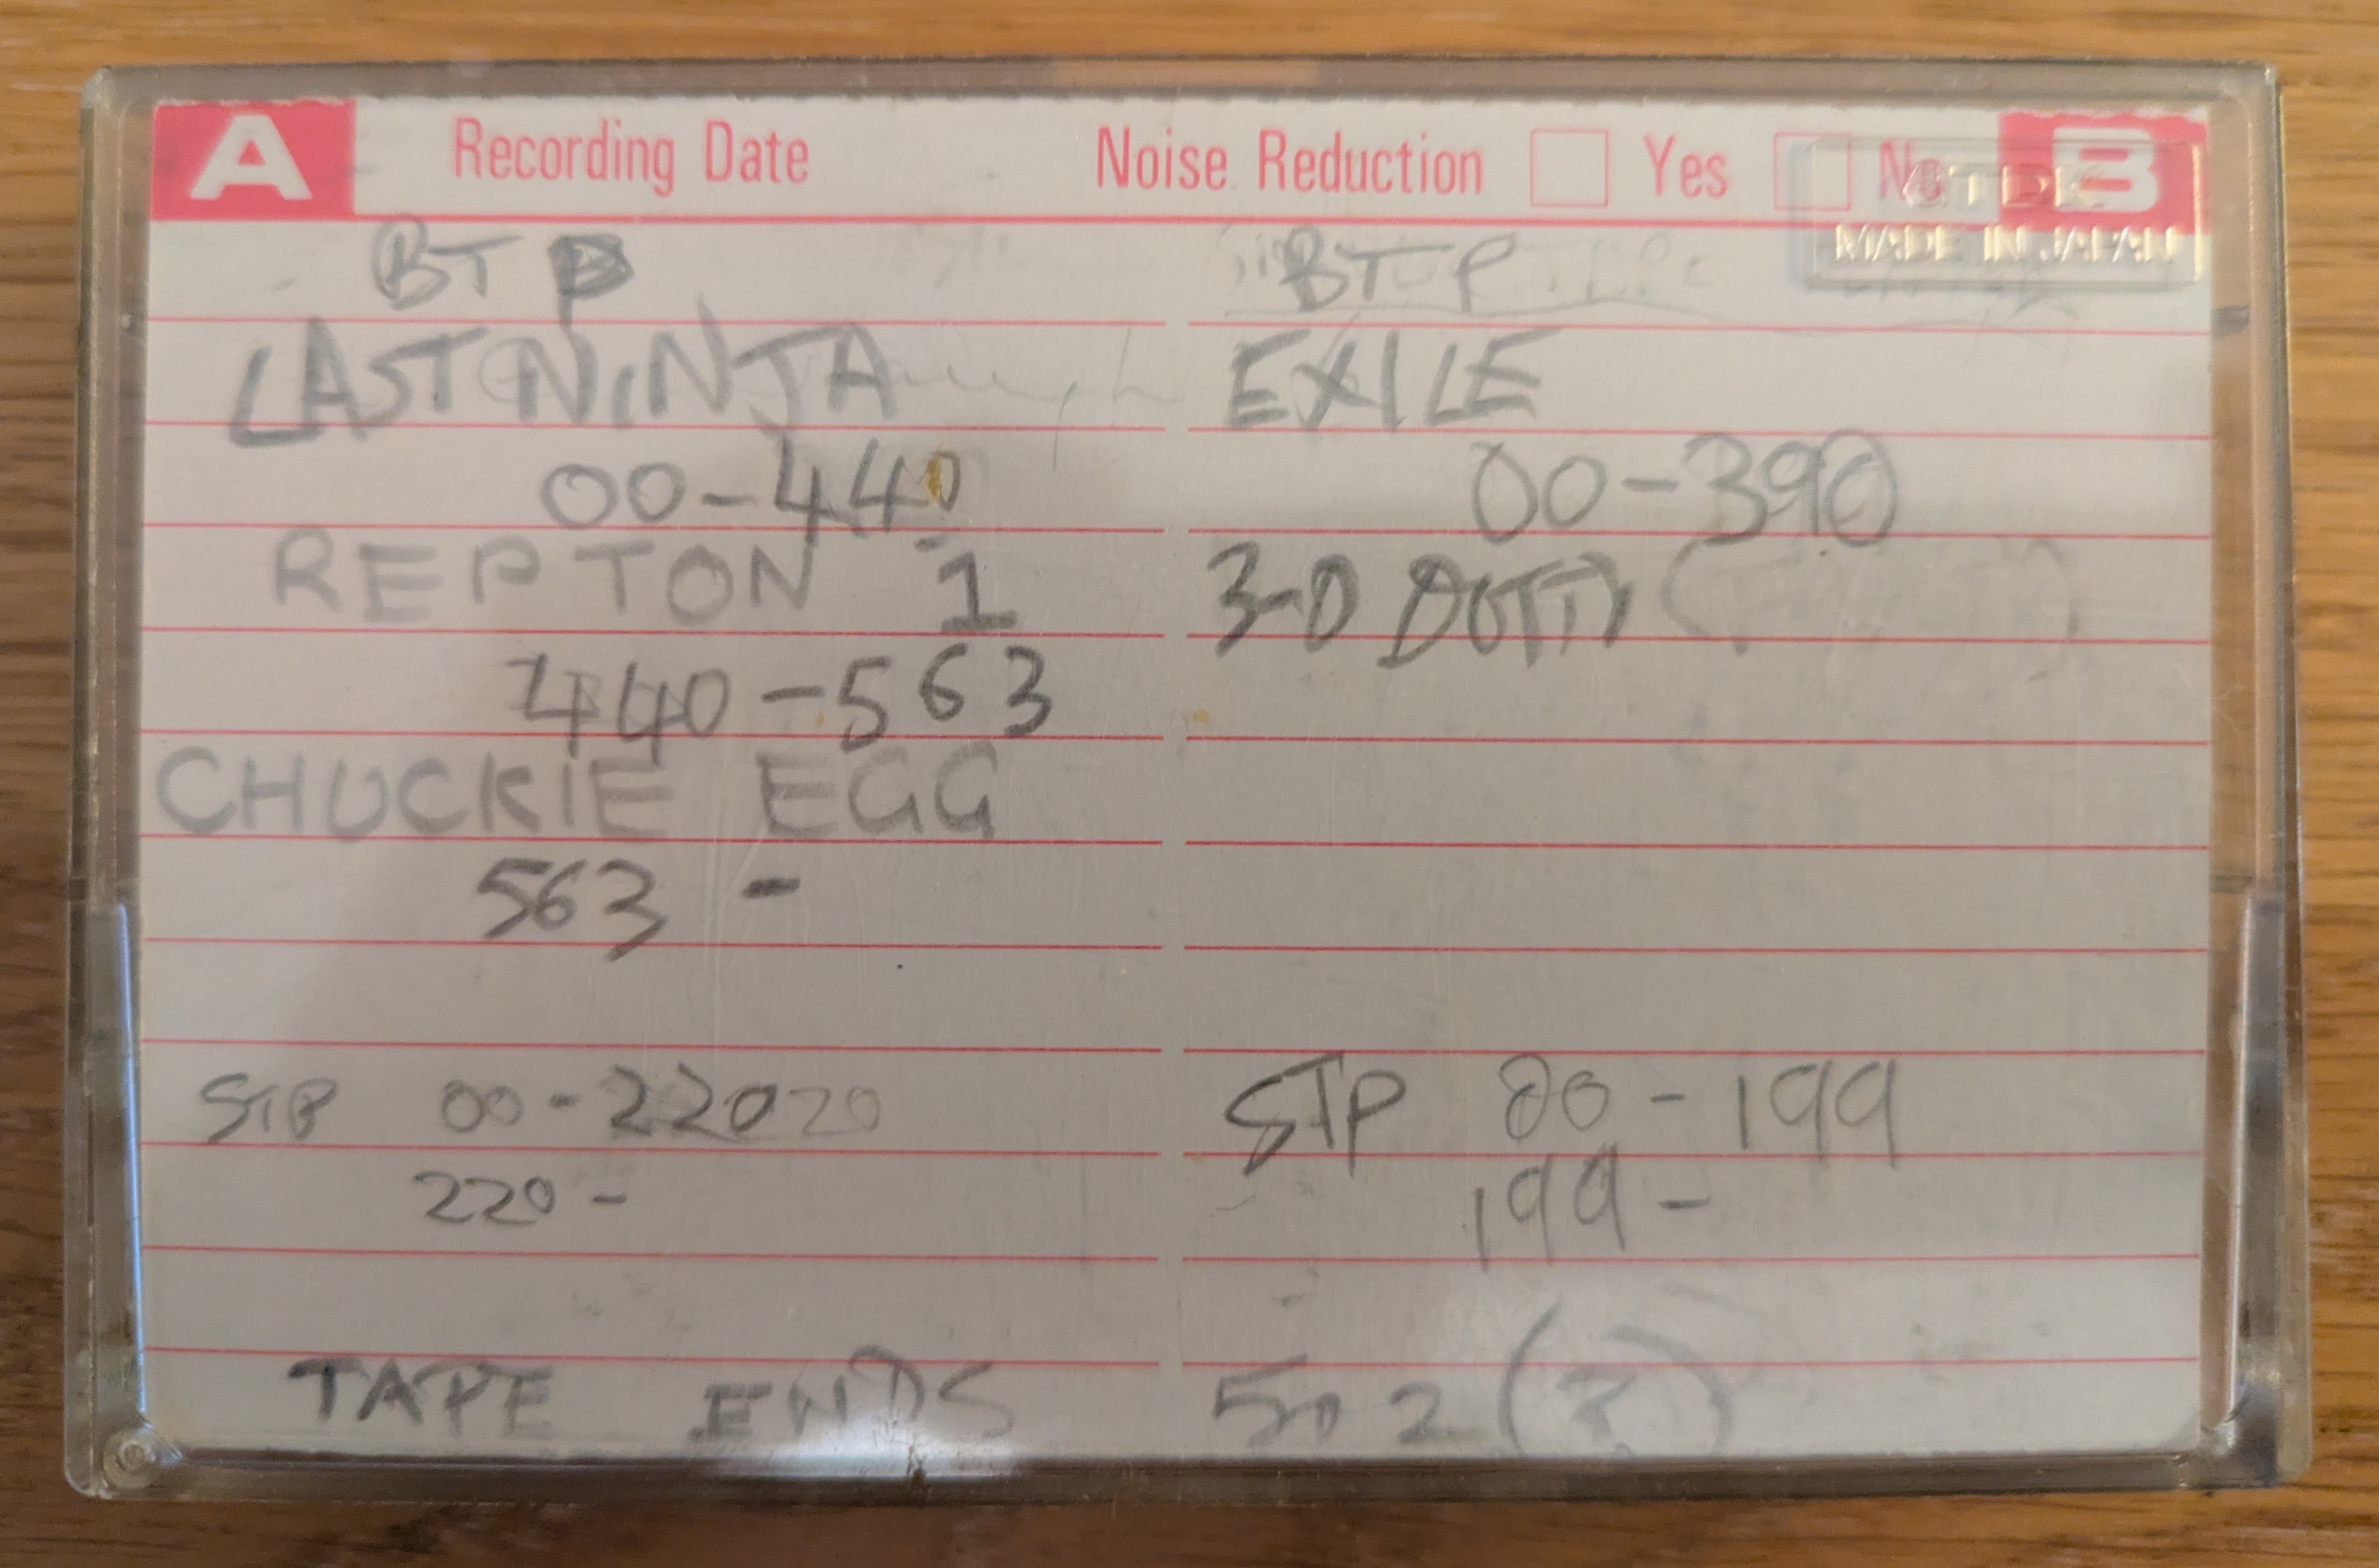 A Recording Date Noise Reduction Yes No B
TDK
MADE IN JAPAN
BTP
LAST NINJA
00-440
REPTON 1
440-563
CHUCKIE EGG
563 -
STP 00-220 20
220 -
TAPE ENDS 502 (?)
BTP
EXILE
00-390
3-D DOTTY
STP 00-199
199 -